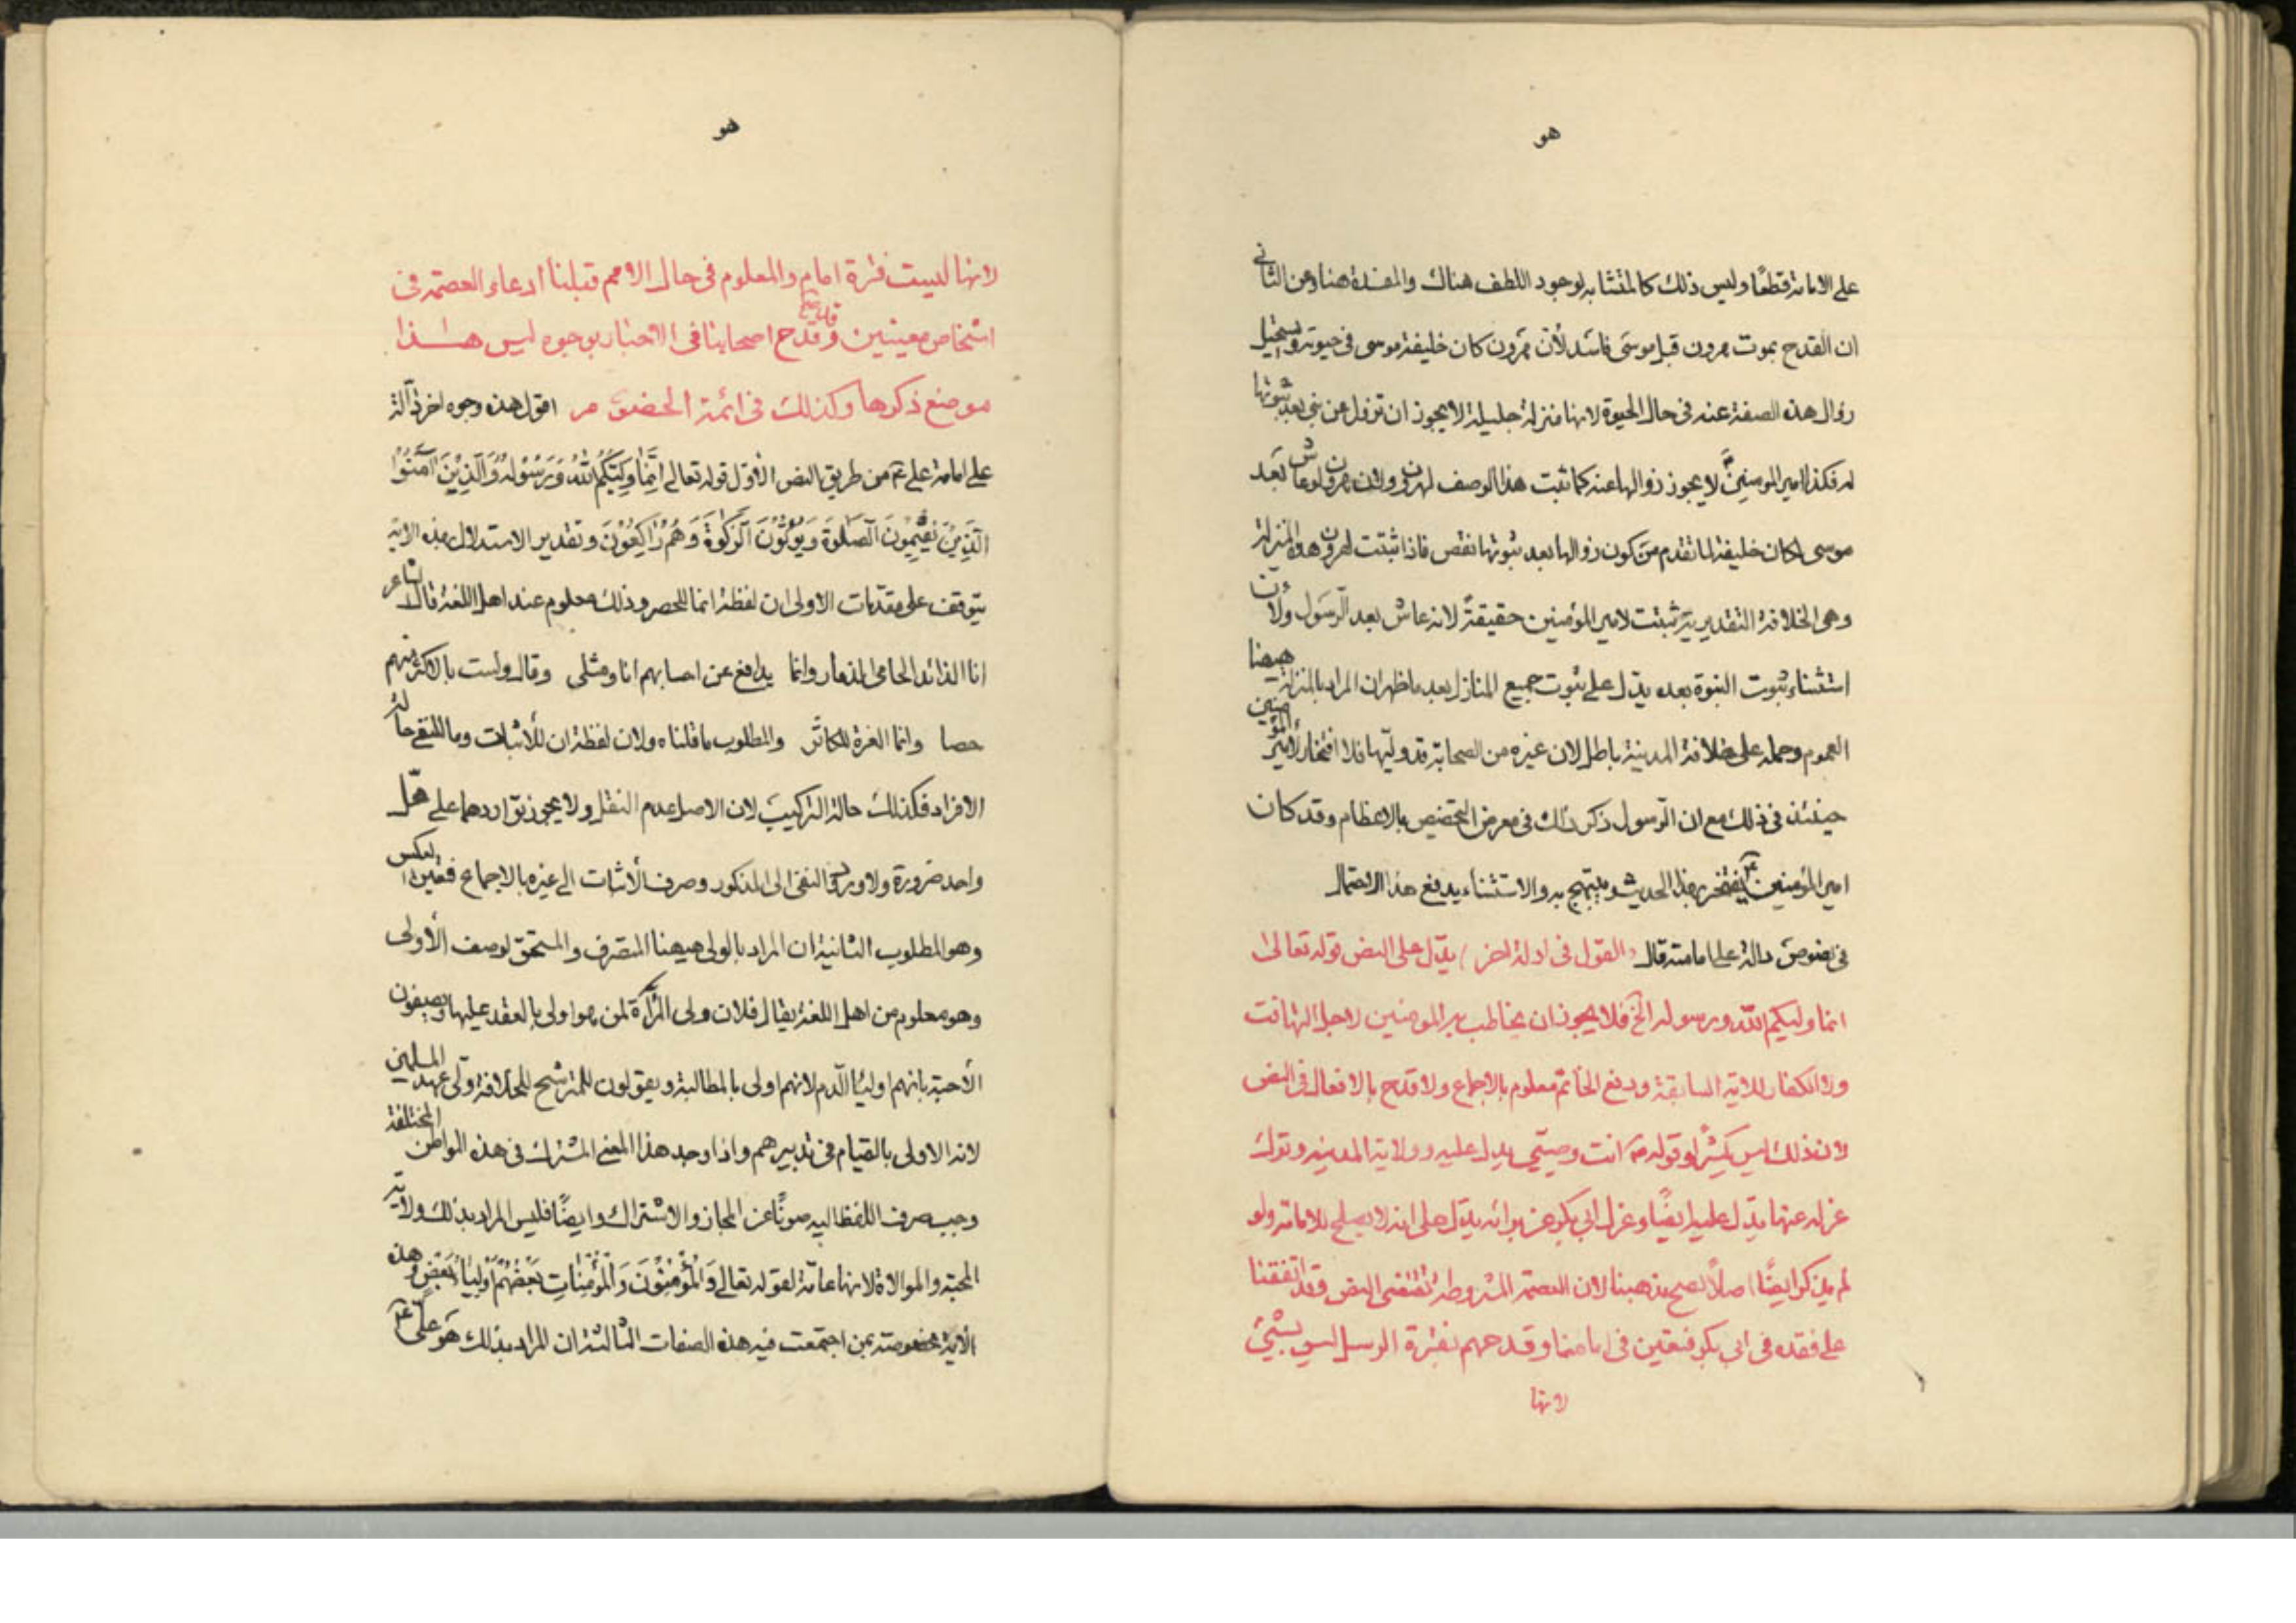 هو
على الامامة قطعًا وليس ذلك كالمتشابه لوجود اللطف هناك والمفسدة هنا وعن الثاني
ان القدح بموت هرون قبل موسى فاسد لأن هرون كان خليفة موسى في حيوته ويستحيل
زوال هذه الصفة عنه في حال الحيوة لانها منزلة جليلة لا يجوز ان تزول عن نبي بعد ثبوتها
له فكذا امير المومنين ع لا يجوز زوالها عنه كما ثبت هذا الوصف لهرون ولان هرون لو عاش بعد
موسى لكان خليفة لما تقدم من كون زوالها بعد ثبوتها نقص فاذا ثبتت لهرون هذه المنزلة
وهى الخلافة التقديرية ثبتت لامير المؤمنين حقيقةً لانه عاش بعد الرّسول ولأن
استثناء ثبوت النبوة بعده يدّل على ثبوت جميع المنازل بعد ما ظهر ان المراد بالمنزلة هيهنا
العموم وحمله على خلافة المدينة باطل لان غيره من الصحابة قد وليّها فلا افتخار لأمير المؤمنين
حينئذ في ذلك مع ان الرّسول ذكر ذلك في معرض التخصيص بالاعظام وقد كان
امير المؤمنين ع يفتخر بهذا الحديث ويبتهج به والاستثناء يدفع هذا الاحتمال
في نصوص دالة على امامته قال القول في ادلة اخر يدّل على النص قوله تعالى
انما وليكم اللّه ورسوله الخ فلا يجوز ان يخاطب به المومنين لاجل التهافت
ولا الكفار للاية السابقة ودفع الخاتم معلوم بالاجماع ولا قدح بالافعال في النص
لان ذلك ليس بكثير وقوله ع انت وصيّي يدل عليه وولاية المدينه وترك
عزله عنها يدّل عليه ايضًا وعزل ابي بكر عن براءة يدّل على انه لا يصلح للامامة ولو
لم يذكر ايضًا اصلًا لصح مذهبنا لان العصمة المشروطة تقتضى النص وقد اتفقنا
على فقده في ابي بكر فتعين في امامنا وقدحهم بفترة الرسل ليس بشيئ
لانها
هو
لانها ليست فترة امام والمعلوم في حال الامم قبلنا ادعاء العصمة في
اشخاص معينين وقدح اصحابنا في الاخبار بوجوه ليس هذا
موضع ذكرها وكذلك في ائمة الخصوم مر اقول هذه وجوه اخر دآلة
على امامة على ع من طريق النص الأول قوله تعالى اِنَّمَا وَلِيُّكُمُ اللّهُ وَرَسُولُهُ وَالَّذِيْنَ آمَنُوا
الَّذِيْنَ يُقِيْمُونَ الصَلوةَ وَيُؤتُونَ الزَكوةَ وَهُمْ رَاكِعُوْنَ وتقدير الاستدلال بهذه الاية
يتوقف على مقدّمات الاولى ان لفظة انما للحصر وذلك معلوم عند اهل اللغة قال الشاعر
انا الذائد الحامى الذمار وانما يدافع عن احسابهم انا ومثلى وقال ولست بالاكثر منهم
حصا وانما العزة للكاثر والمطلوب ما قلناه ولان لفظة ان للأثبات وما للنفي حالة
الافراد فكذلك حالة التركيب لان الاصل عدم النقل ولا يجوز تواردهما على محلّ
واحد ضرورة ولا ورد النفى الى المذكور وصرف الأثبات الى غيره بالاجماع فتعين العكس
وهو المطلوب الثانية ان المراد بالولى هيهنا المتصرف والمستحق لوصف الأولى
وهو معلوم من اهل اللغة يقال فلان ولى المرأة لمن هو اولى بالعقد عليها ويصفون
الأحبة بانهم اوليآ الّدم لانهم اولى بالمطالبة ويقولون للمترشح للخلافة ولّى عهد المسلمين
لانه الاولى بالقيام في تدبيرهم واذا وجد هذا المعنى المشترك في هذه المواطن المختلفة
وجب صرف اللفظ اليه صونًا عن المجاز والاشتراك وايضًا فليس المراد بذلك ولاية
المحبة والموالاة لانها عامّة لقوله تعالى وَالمُؤْمِنُوْنَ وَالْمُؤْمِنَاتِ بَعْضُهُمْ اَوْلِيَاءُ بَعْضٍ وهذه
الآية مخصوصة بمن اجتمعت فيه هذه الصفات الثالثة ان المراد بذلك هو علىّ ع